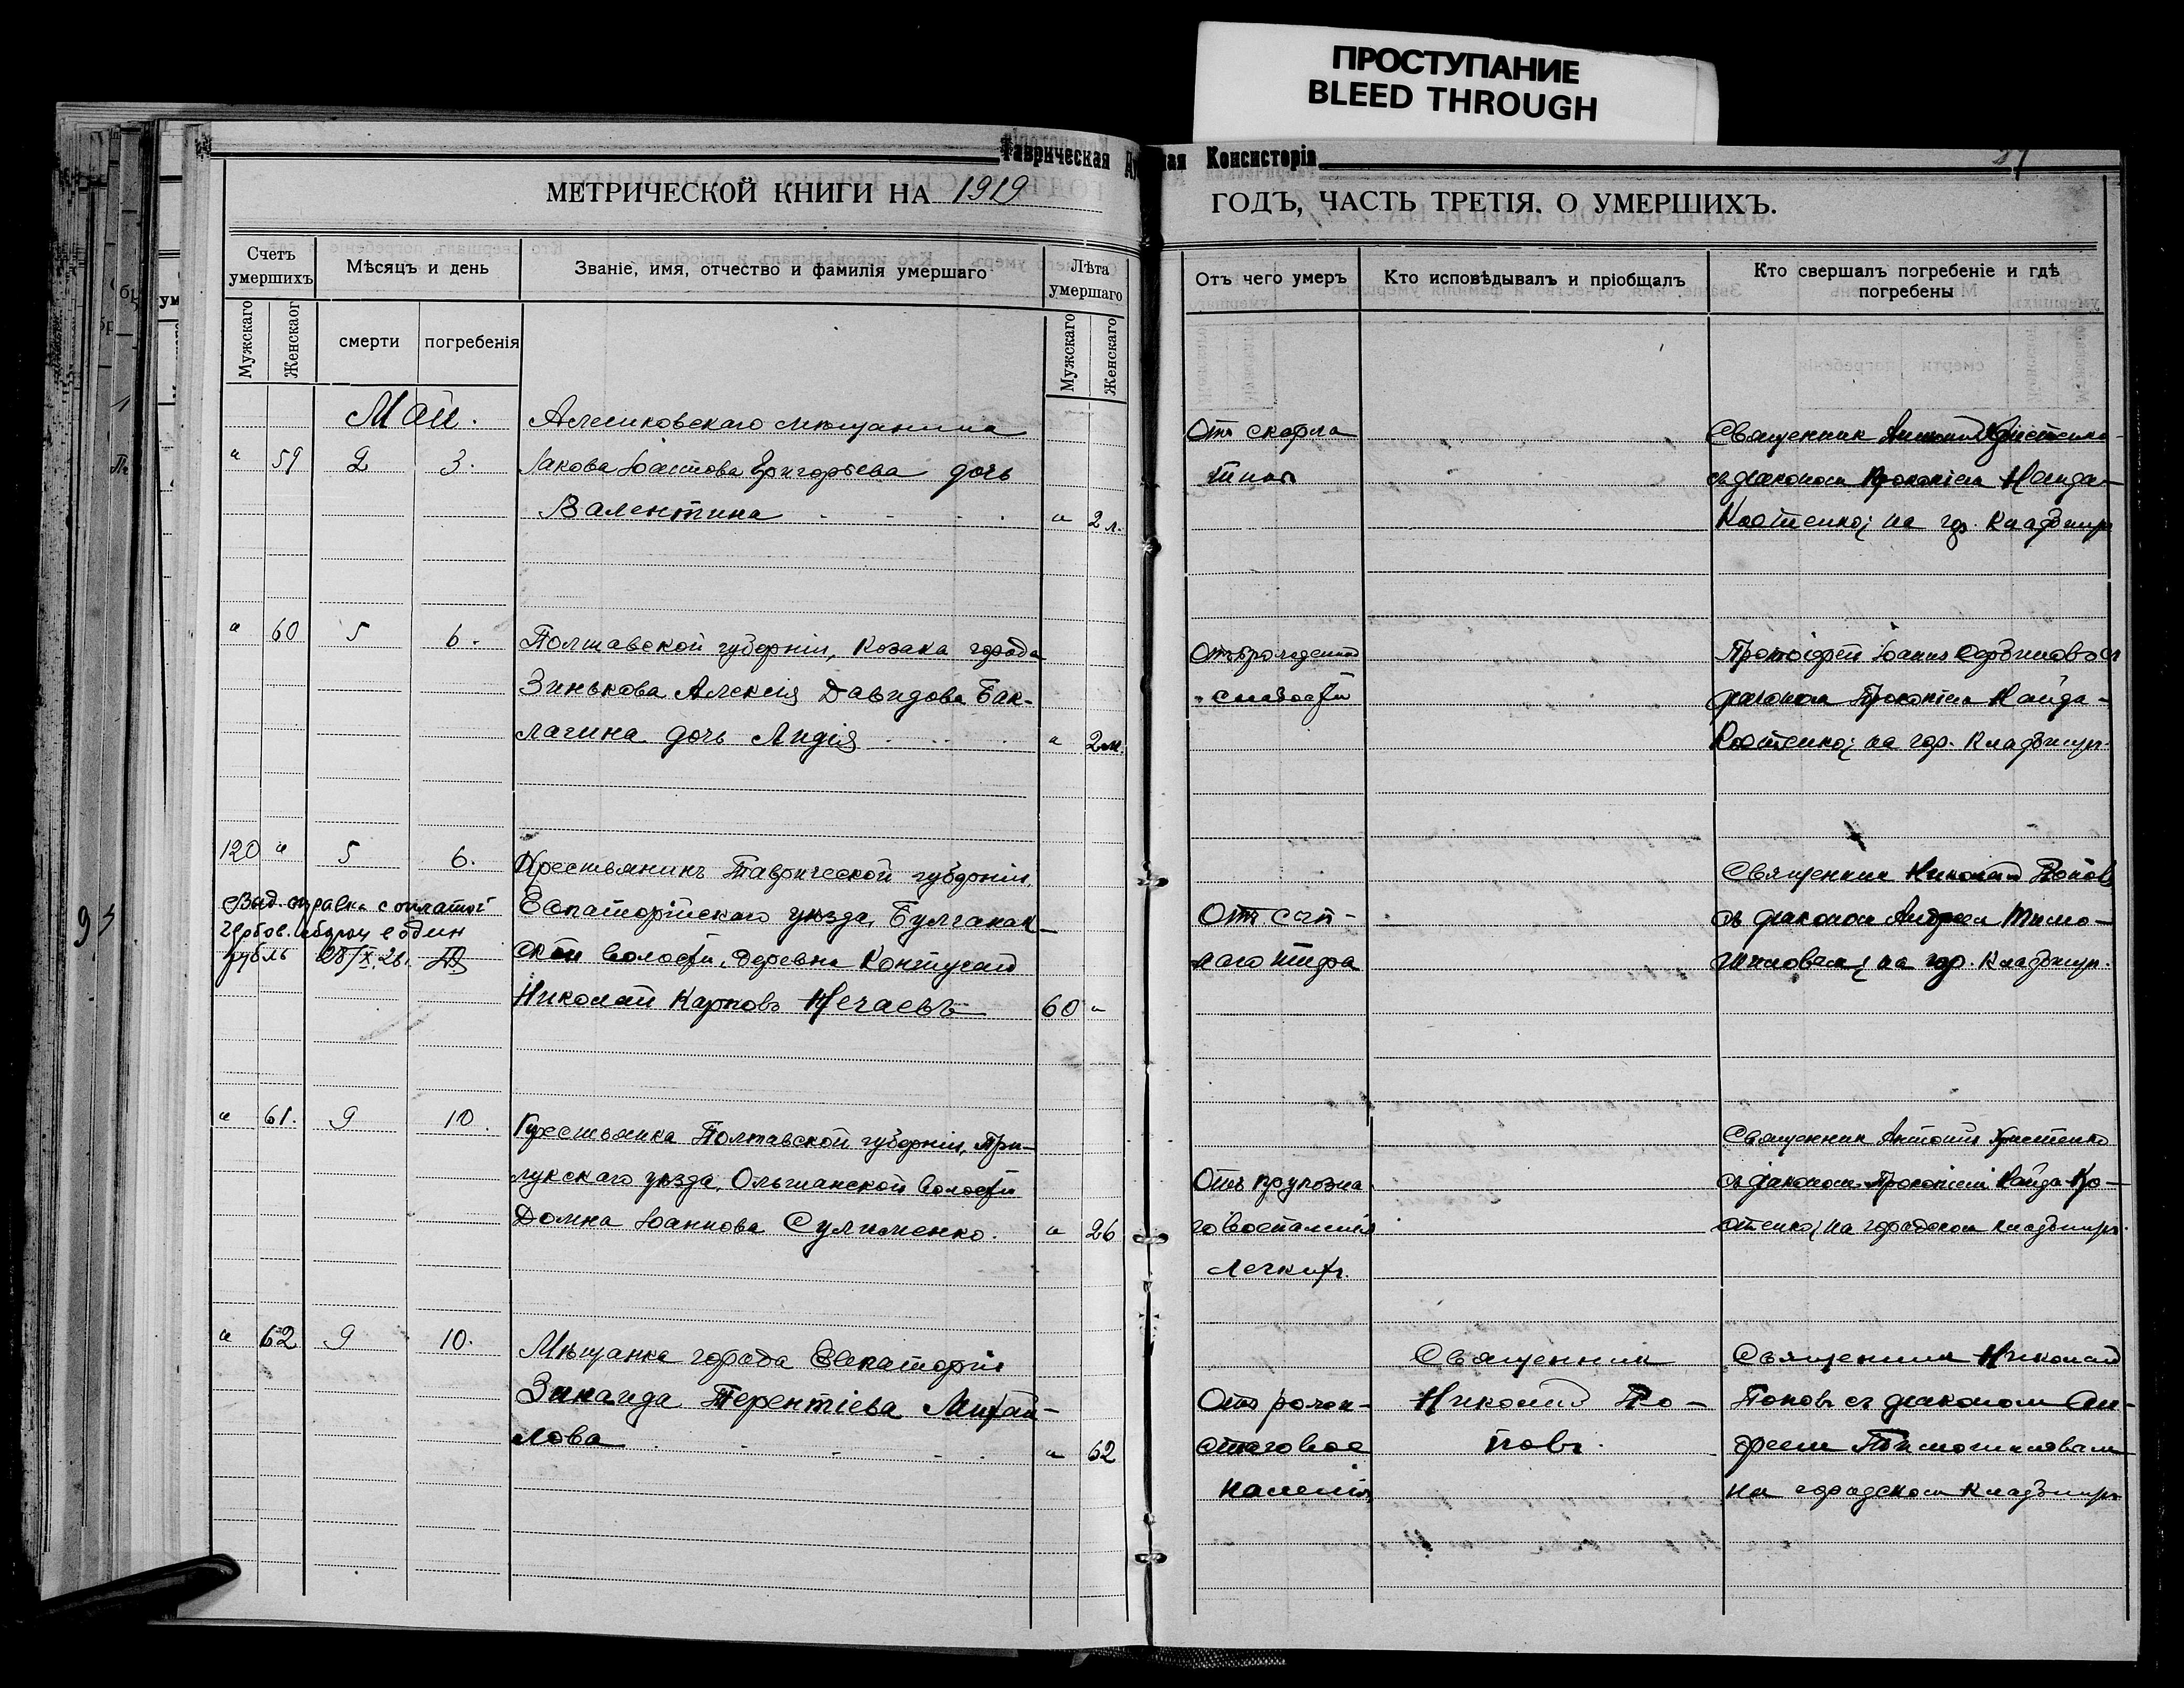 ПРОСТУПАНИЕ
BLEED THROUGH
Таврическая Консисторія
МЕТРИЧЕСКОЙ КНИГИ НА 1919
ГОДЪ, ЧАСТЬ ТРЕТІЯ, О УМЕРШИХЪ.
Счетъ умершихъ
Мѣсяцъ и день
Званіе, имя, отчество и фамилія умершаго
Лѣта умершаго
Отъ чего умеръ
Кто исповѣдывалъ и пріобщалъ
Кто свершалъ погребеніе и гдѣ погребены
Мужскаго
Женскаог
смерти
погребенія
Мужскаго
Женскаго
Май.
" 59 2 3.
Алешковскаго мѣщанина
Іакова Григорьева дочь
Валентина " 2 л.
Отъ скарла
тины
Священникъ
съ діакономъ Прокопіемъ Найда-
Костенко; на гр. кладбищѣ
" 60 5 6.
Полтавской губерніи, козака города
Зинькова Алексія Давидова Бак-
лагина дочь Лидія " 2 м.
Отъ врожденной
слабости
Протоіерей Іоаннъ Сербиновъ съ
діакономъ Прокопіемъ Найда-
Костенко; на гор. кладбищѣ.
120 " 5 6.
Выд. справка с оплатой
гербов. сбора один
рубль 28/X 26.
Крестьянинъ Таврической губерніи,
Евпаторійскаго уѣзда, Булганак-
ской волости, деревни Контуган
Николай Карповъ Нечаевъ 60 "
Отъ сып-
наго тифа
Священникъ Николай Поповъ
съ діакономъ Андреемъ Тимо-
шиловымъ; на гор. кладбищѣ.
" 61. 9 10.
Крестьянка Полтавской губерніи, При-
лукскаго уѣзда, Ольшанской волости
Домна Іоаннова Сулименко. " 26
Отъ крупозна
го воспаленія
легкихъ.
Священникъ Антоній Христенко
съ діакономъ Прокопіемъ Найда-Ко-
стенко; на городскомъ кладбищѣ.
" 62 9 10.
Мѣщанка города Евпаторіи
Зинаида Терентіева Михай-
лова " 62
Священникъ
Николай По-
повъ.
Священникъ Николай
Поповъ съ діакономъ Ан-
дреемъ Тимошиловымъ
на городскомъ кладбищѣ